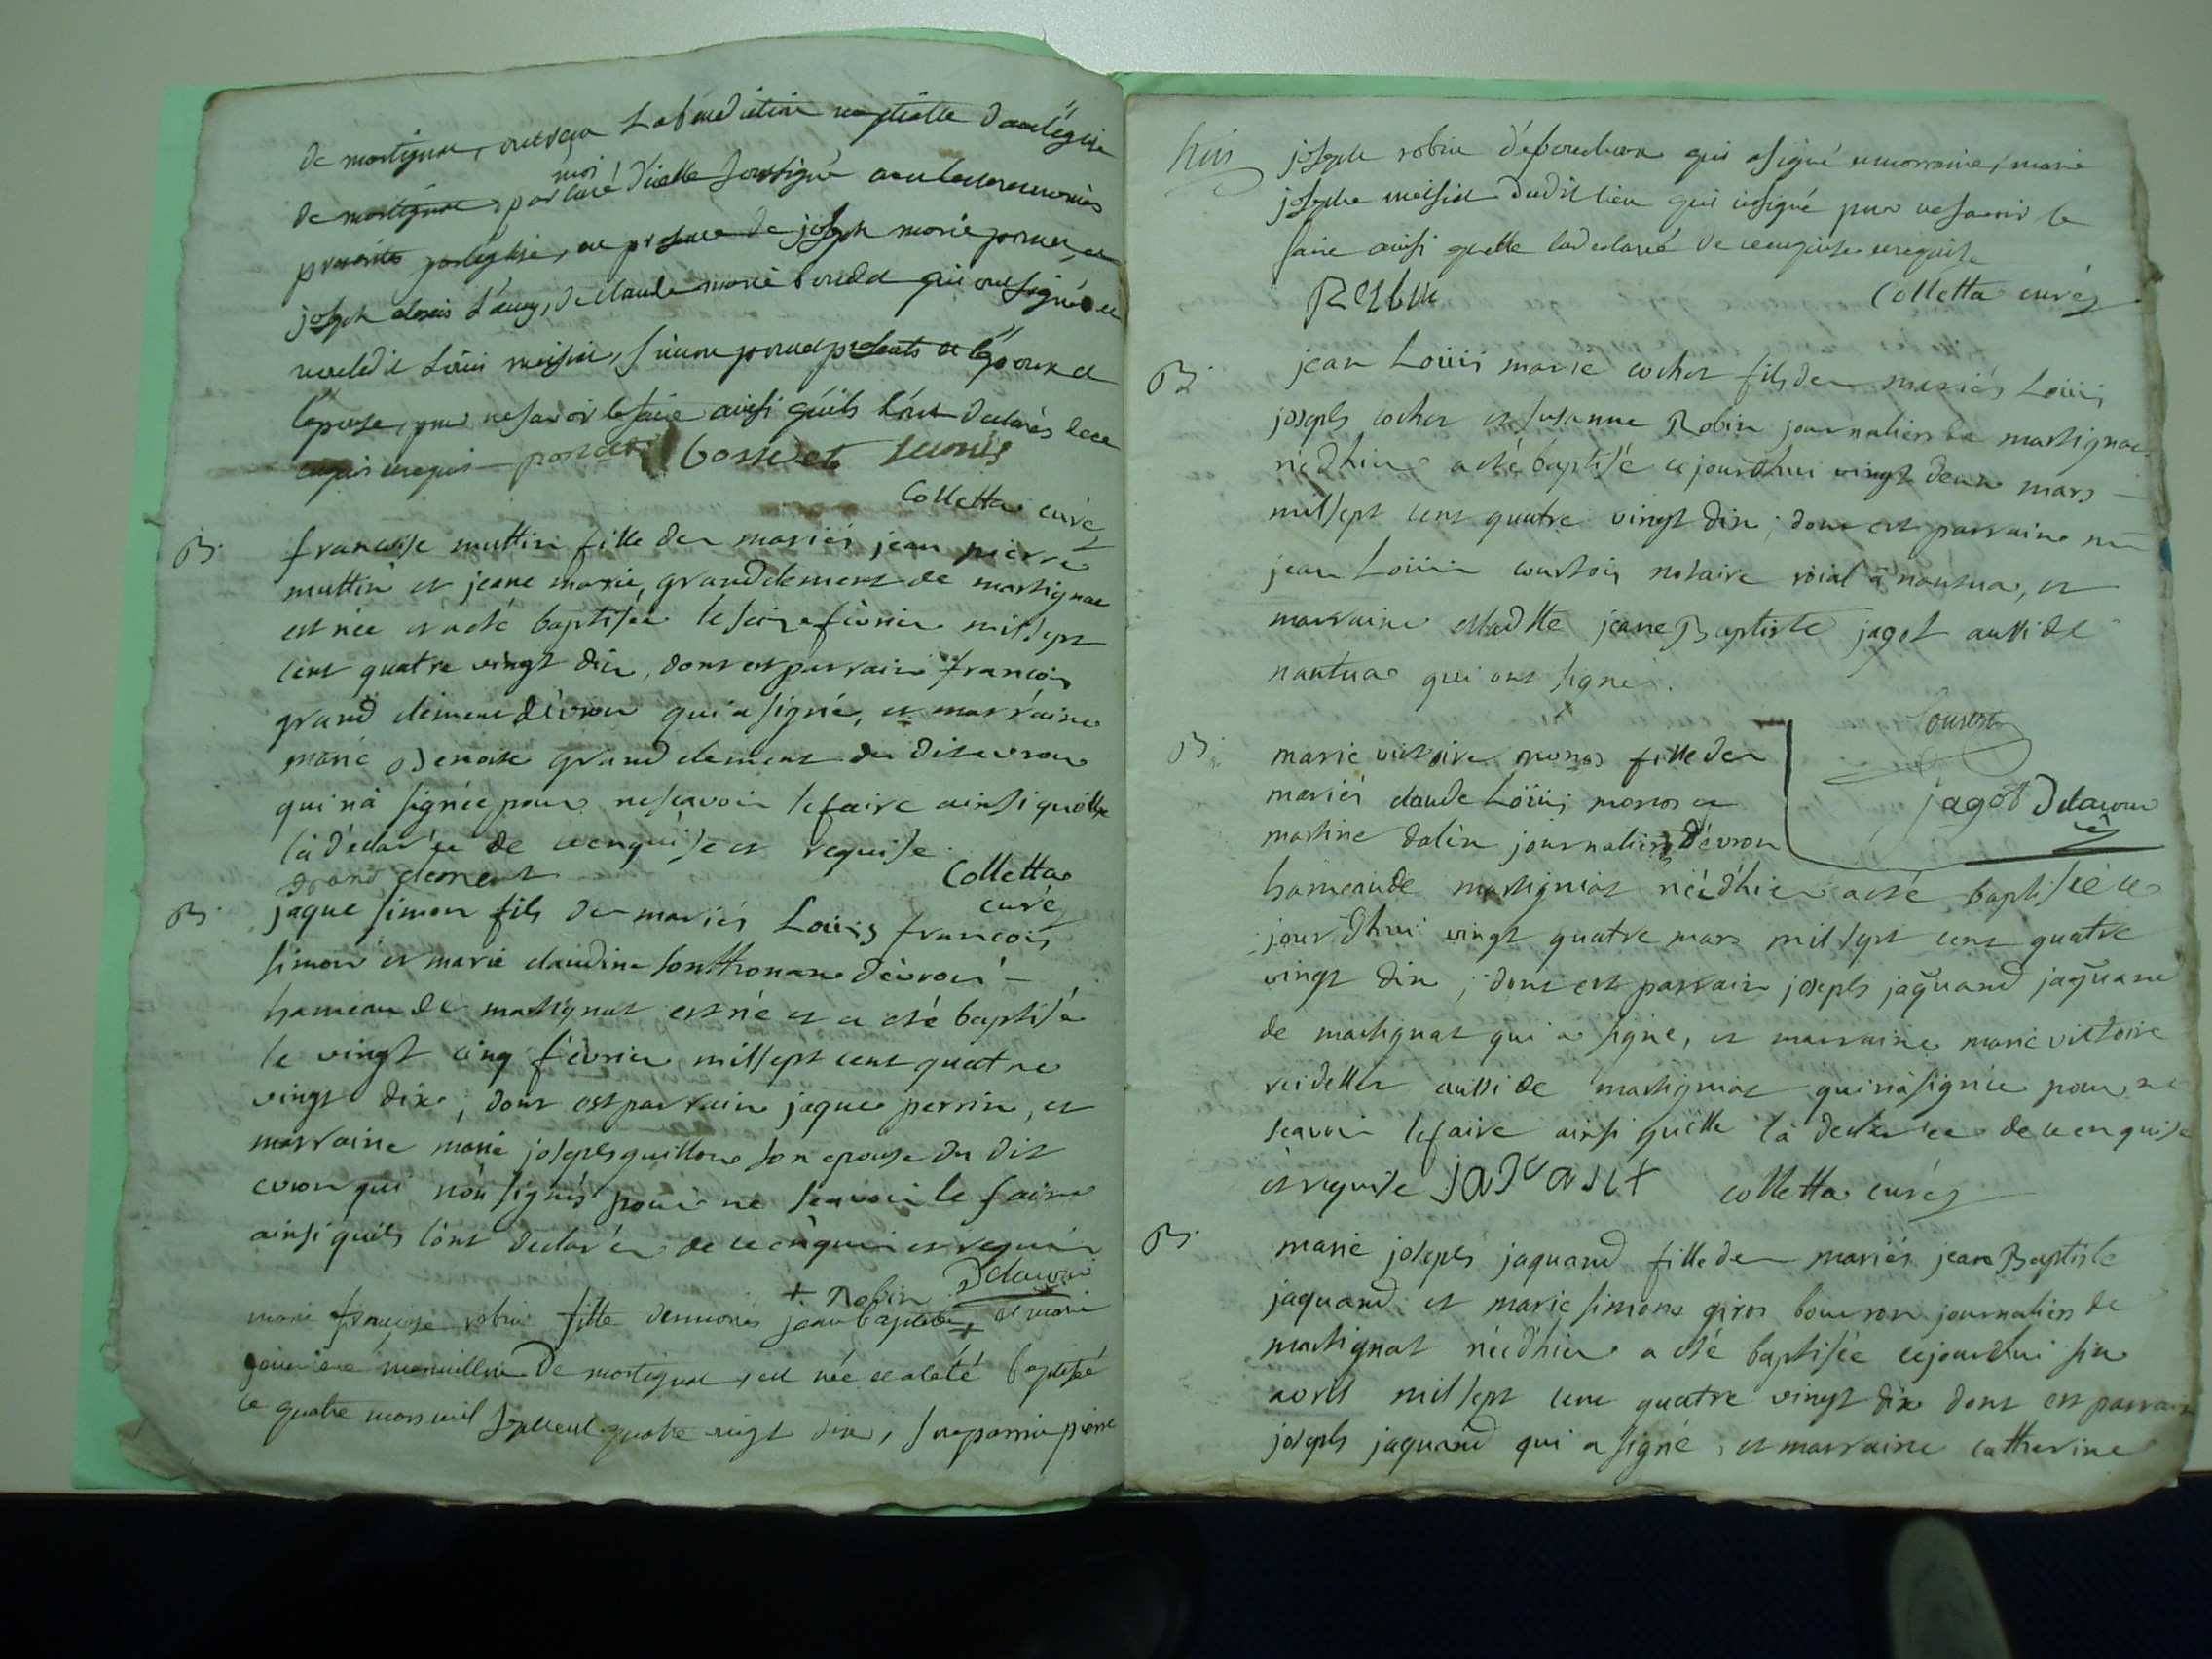 de martignat, ont reçu la benediction nuptialle dans l'église
de martignat, par moi curé d'icelle soussigné avec les ceremonies
par l'église, en presence de joseph marie poncet, et
joseph alexis de claude marie bondet qui ont signés et
non ledit Loüis simon poncet presents et l'époux et
l'epouse, pour ne savoir le faire ainsi qu'ils l'ont declarés de ce
enquis requis poncet bondet
Colletta curé
B.
francoise muttin fille des mariés jean pierre
muttin et jeane marie, grandclement de martignat
est née et a eté baptisée le seize février mil sept
cent quatre vingt dix, dont est parrain francois
grand clement d'évron qui a signé, et marraine
marie grand clement du dit evron
qui n'a signée pour ne scavoir le faire ainsi qu'elle
l'a déclarée de ce enquise et requise
grand clement Colletta
curé
B.
jaque simon fils des mariés Loüis francois
simon et marie claudine sonthonax d'évron
hameau de martignat est né et a eté baptisé
le vingt cinq février mil sept cent quatre
vingt dix, dont est parrain jaque perrin, et
marraine marie joseph guillon son epouse du dit
evron qui n'on signés pour ne scavoir le faire
ainsi qu'ils l'ont declarés de ce enquis et requis
+ Robin Delacour
marie françoise robin fille des mariés jean baptiste + et marie
de martignat, est née et a été baptisée
le quatre mars mil sept cent quatre vingt dix, son parrain pierre
joseph robin qui a signé et marraine, marie
josephe dudit lieu qui n'a signé pour ne savoir le
faire ainsi qu'elle l'a declaré de ce enquise et requise
Robin Colletta curé
B.
jean Loüis marie cochet fils des mariés Loüis
joseph cochet et susanne Robin journaliers de martignat
né d'hier a eté baptisé ce jourdhui vingt deux mars
mil sept cent quatre vingt dix; dont est parrain mr
jean Loüis courtois notaire roial à nantua, et
marraine madlle jeane Baptiste jagot aussi de
nantua qui ont signés.
jagot Delacour
B.
marie victoire monos fille des
mariés claude Loüis monos et
martine dalin journaliers d'évron
hameau de martignat née d'hier a eté baptisée ce
jourdhui vingt quatre mars mil sept cent quatre
vingt dix; dont est parrain joseph jaquand jaquand
de martignat qui a signé, et marraine marie victoire
aussi de martignat qui n'a signée pour ne
scavoir le faire ainsi qu'elle l'a declarée de ce enquise
et requise jaquant colletta curé
B.
marie joseph jaquand fille des mariés jean Baptiste
jaquand et marie simone giros bourron journaliers de
martignat née d'hier a eté baptisée ce jourdhui six
avril mil sept cent quatre vingt dix dont est parrain
joseph jaquand qui a signé, et marraine catherine